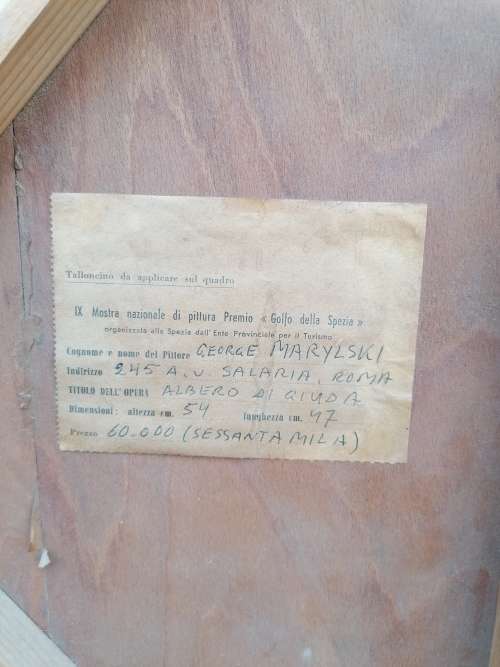 Talloncino da applicare sul quadro
IX Mostra nazionale di pittura Premio « Golfo della Spezia »
organizzata alla Spezia dall' Ente Provinciale per il Turismo
Cognome e nome del Pittore GEORGE MARYLSKI
Indirizzo 245 A. V. SALARIA. ROMA
TITOLO DELL'OPERA ALBERO DI GIUDA
Dimensioni: altezza cm. 54 larghezza cm. 47
Prezzo 60.000 (SESSANTA MILA)